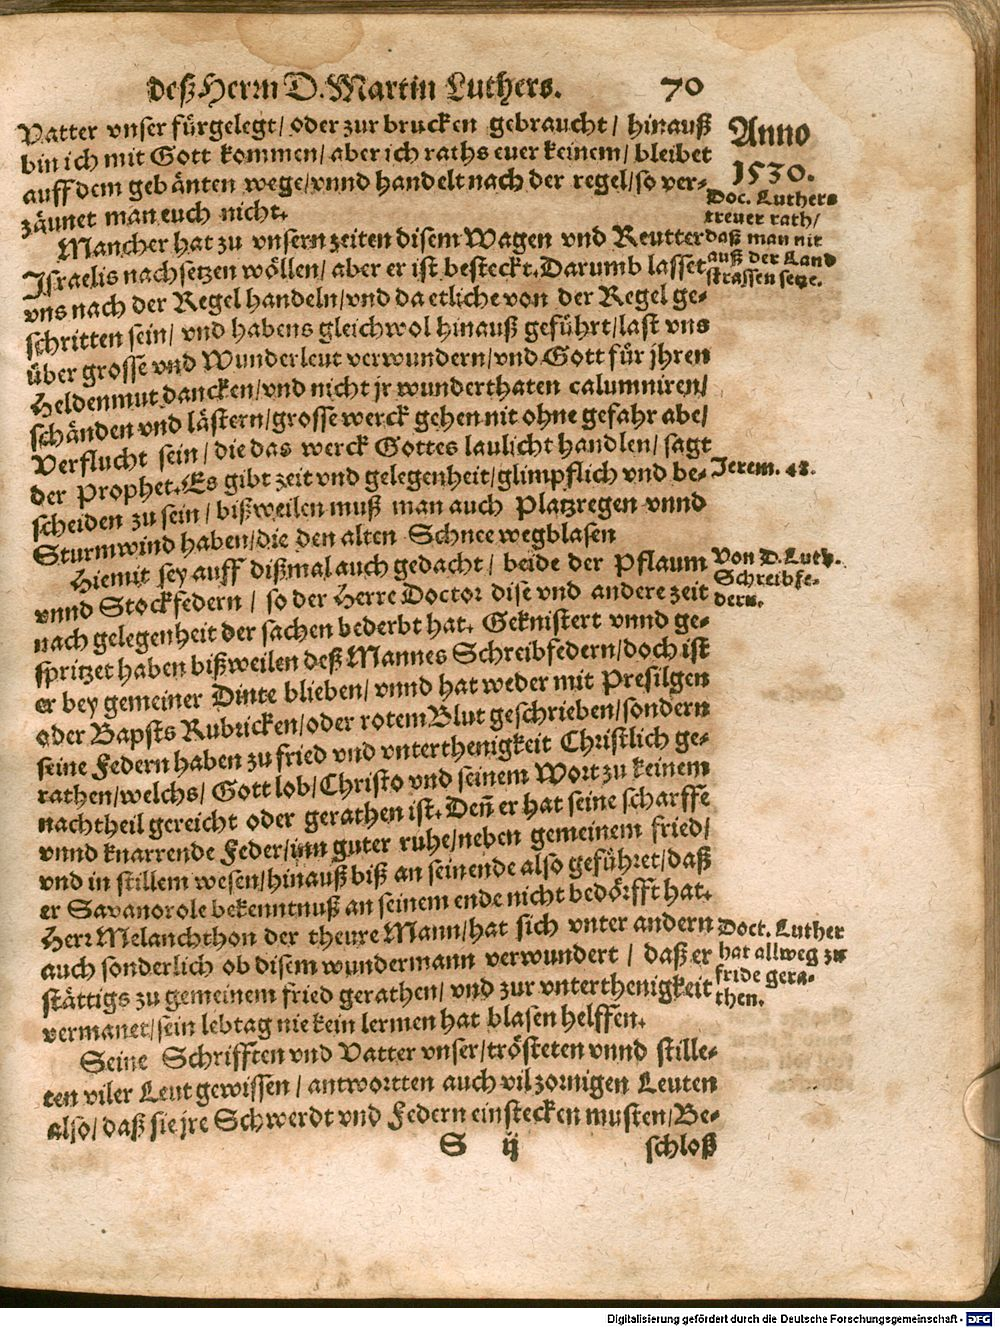 deß Herrn D. Martin Luthers. 70
Vatter vnser fürgelegt/ oder zur brucken gebraucht/ hinauß
bin ich mit Gott kommen/ aber ich raths euer keinem/ bleibet
auff dem gebänten wege/ vnnd handelt nach der regel/ so ver-
zäunet man euch nicht.
Mancher hat zu vnsern zeiten disem Wagen vnd Reutter
Israelis nachsetzen wöllen/ aber er ist besteckt. Darumb lasset
vns nach der Regel handeln/ vnd da etliche von der Regel ge-
schritten sein/ vnd habens gleichwol hinauß geführt/ last vns
über grosse vnd Wunderleut verwundern/ vnd Gott für jhren
Heldenmut dancken/ vnd nicht jr wunderthaten calumniren/
schänden vnd lästern/ grosse werck gehen nit ohne gefahr abe/
Verflucht sein/ die das werck Gottes laulicht handlen/ sagt
der Prophet. Es gibt zeit vnd gelegenheit/ glimpflich vnd be-
scheiden zu sein/ bißweilen muß man auch Platzregen vnnd
Sturmwind haben/ die den alten Schnee wegblasen
Hiemit sey auff dißmal auch gedacht/ beide der Pflaum
vnnd Stockfedern/ so der Herre Doctor dise vnd andere zeit
nach gelegenheit der sachen bederbt hat. Geknistert vnnd ge-
spritzet haben bißweilen deß Mannes Schreibfedern/ doch ist
er bey gemeiner Dinte blieben/ vnnd hat weder mit Presilgen
oder Bapsts Rubricken/ oder rotem Blut geschrieben/ sondern
seine Federn haben zu fried vnd vnterthenigkeit Christlich ge-
rathen/ welchs/ Gott lob/ Christo vnd seinem Wort zu keinem
nachtheil gereicht oder gerathen ist. Deñ er hat seine scharffe
vnnd knarrende Feder/ inn guter ruhe/ neben gemeinem fried/
vnd in stillem wesen/ hinauß biß an sein ende also geführet/ daß
er Savanorole bekenntnuß an seinem ende nicht bedörfft hat.
Herr Melanchthon der thewre Mann/ hat sich vnter andern
auch sonderlich ob disem wundermann verwundert/ daß er
stättigs zu gemeinem fried gerathen/ vnd zur vnterthenigkeit
vermanet/ sein lebtag nie kein lermen hat blasen helffen.
Seine Schrifften vnd Vatter vnser/ trösteten vnnd stille-
ten viler Leut gewissen/ antwortten auch vil zornigen Leuten
also/ daß sie jre Schwerdt vnd Federn einstecken musten/ Be-
S ij schloß
Anno
1530.
Doc. Luthers
treuer rath/
daß man nit
auß der Land
strassen setze.
Jerem. 48.
Von D. Luth.
Schreibfe-
dern.
Doct. Luther
hat allweg zu
fride gera-
then.
Digitalisierung gefördert durch die Deutsche Forschungsgemeinschaft - DFG